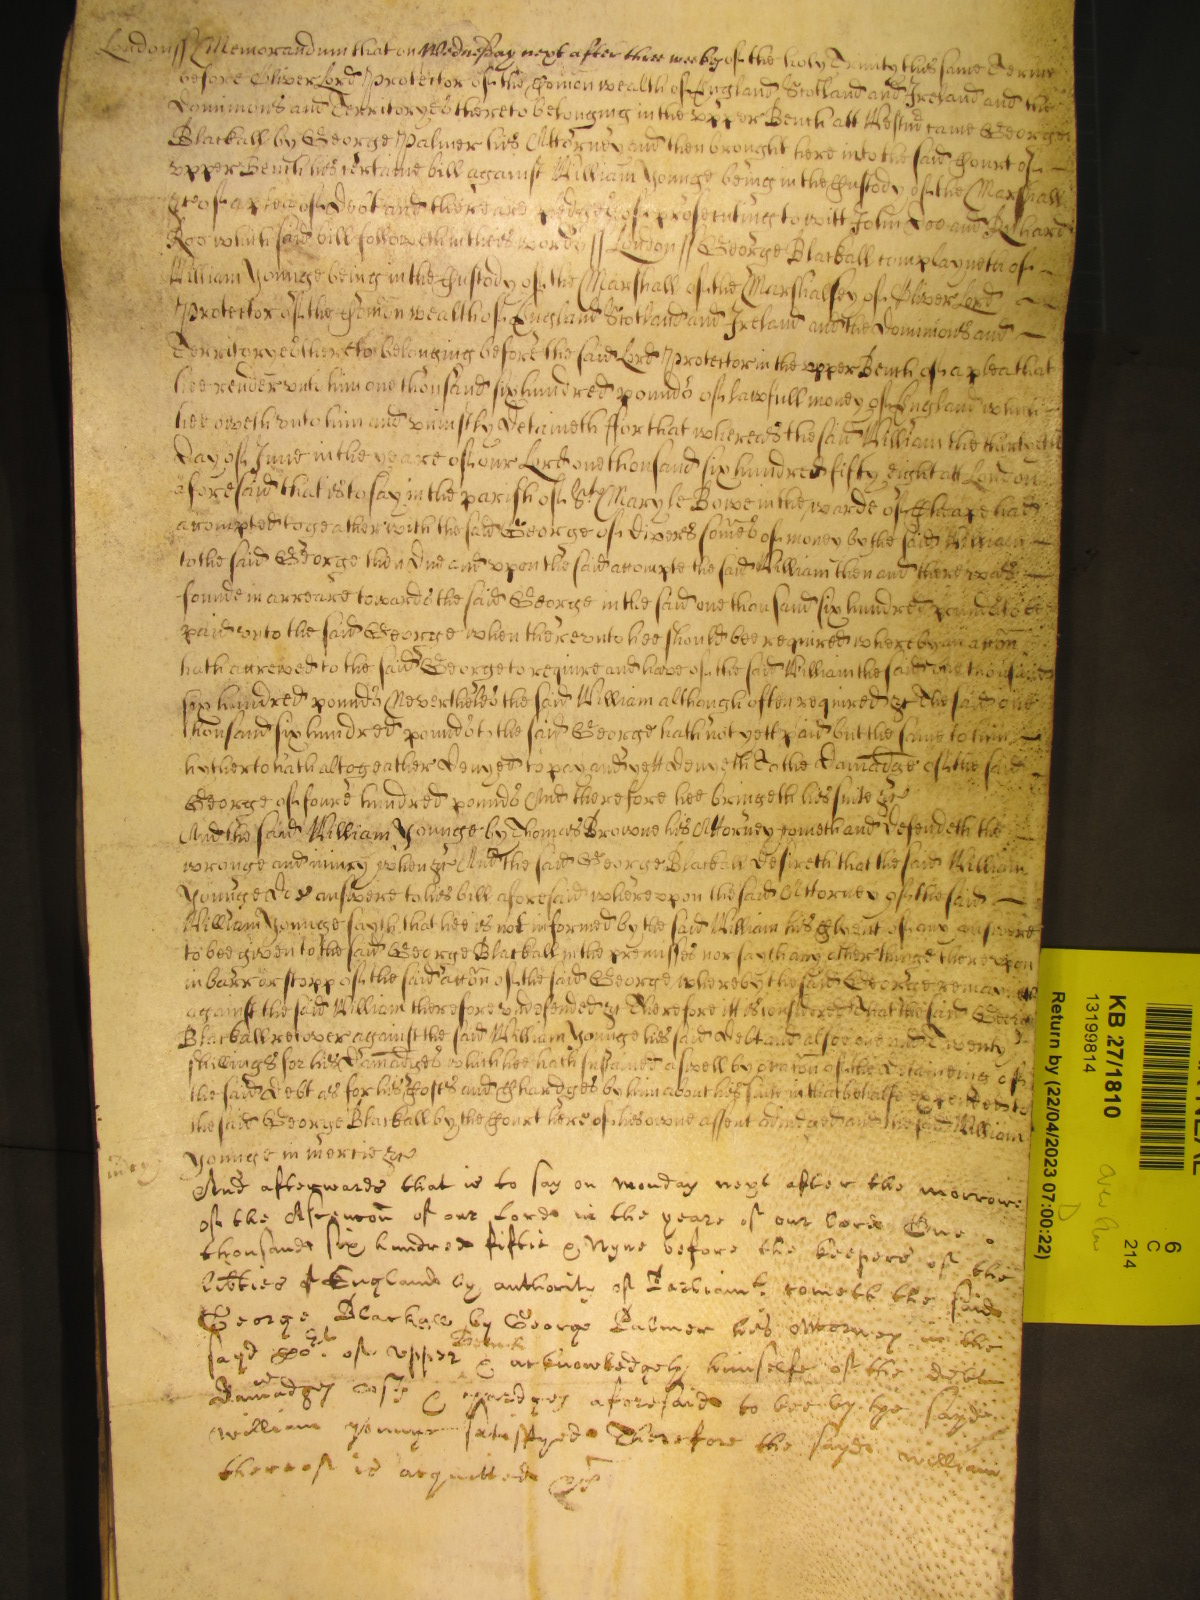 London ss Memorandum that on Wednesday next after three weekes of the holy Trinity this same Terme
before Oliver Lord Protector of the Comon wealth of England Scotland and Ireland and the
Dominions and Territoryes thereto belonging in the upper Bench att Westm came George
Blackall by George Palmer his Attorney and then brought here into the said Court of
upper Bench his certaine bill against William Younge being in the Custody of the Marshall
&c of a plea of Debt and there are pledges of prosecuting to witt John Doe and Richard
Roo which said bill followeth in theis wordes ss London ss George Blackall complayneth of
William Younge being in the Custody of the Marshall of the Marshalsey of Oliver Lord
Protector of the Comon wealth of England Scotland and Ireland and the Dominions and
Territoryes thereto belonging before the said Lord Protector in the upper Bench of a plea that
hee render unto him one thousand six hundred pounds of lawfull money of England which
hee oweth unto him and uniustly detaineth ffor that whereas the said William the thirtyeth
day of June in the yeare of our Lord one thousand six hundred fifty eight att London
aforesaid that is to say in the parish of St Mary le Bowe in the warde of Cheape had
accompted togeather with the said George of divers somes of money by the said William
to the said George then due and upon the said accompte the said William then and there was
founde in arreare towards the said George in the said one thousand six hundred pounds to bee
paid unto the said George when thereunto hee should bee required whereby an accon
hath accrewed to the said George to require and have of the said William the said one thousand
six hundred pounds Neverthelesse the said William although often required &c the said one
thousand six hundred pounds to the said George hath not yett paid but the same to him
hytherto hath altogeather denyed to pay and yett denyeth To the damadge of the said
George of foure hundred pounds And therefore hee bringeth his suite &c
And the said William Younge by Thomas Browne his Attorney cometh and defendeth the
wronge and iniury when &c And the said George Blackall desireth that the said William
Younge doe answere to his bill aforesaid whereupon the said Attorney of the said
William Younge sayth that hee is not informed by the said William his Clyent of any answere
to bee given to the said George Blackall in the premisses nor sayth any other thinge thereupon
in barr or stopp of the said accon of the said George whereby the said George remayneth
against the said William therefore undefended &c Therefore itt is considered that the said George
Blackall recover against the said William Younge his said debt and alsoe one and Twenty
shillings for his Damadges which hee hath susteyned aswell by occacon of the deteineing of
the said debt as for his Costes and Chardges by him about his suite in that behalfe expended to
the said George Blackall by the Court here of his owne assent adiudged and the said William
Younge in mercie &c
And afterwards that is to say on Monday next after the morrow
of the Ascencon of our Lord in the yeare of our Lord One
thousand six hundred fiftie & Nyne before the keepers of the
lib'ties of England by authority of Parliamt. cometh the said
George Blackall by George Palmer his Attorney in the
sayd Co:rt of upper Bench & acknowledgeth himselfe of the debt
Damadges costs & chardges aforesaid to bee by the sayd
William Younge satisfyed Therefore the sayd William
thereof is acquitted &c
KB 27/1810
13199814
Return by (22/04/2023 07:00:22)
D
6
C
214